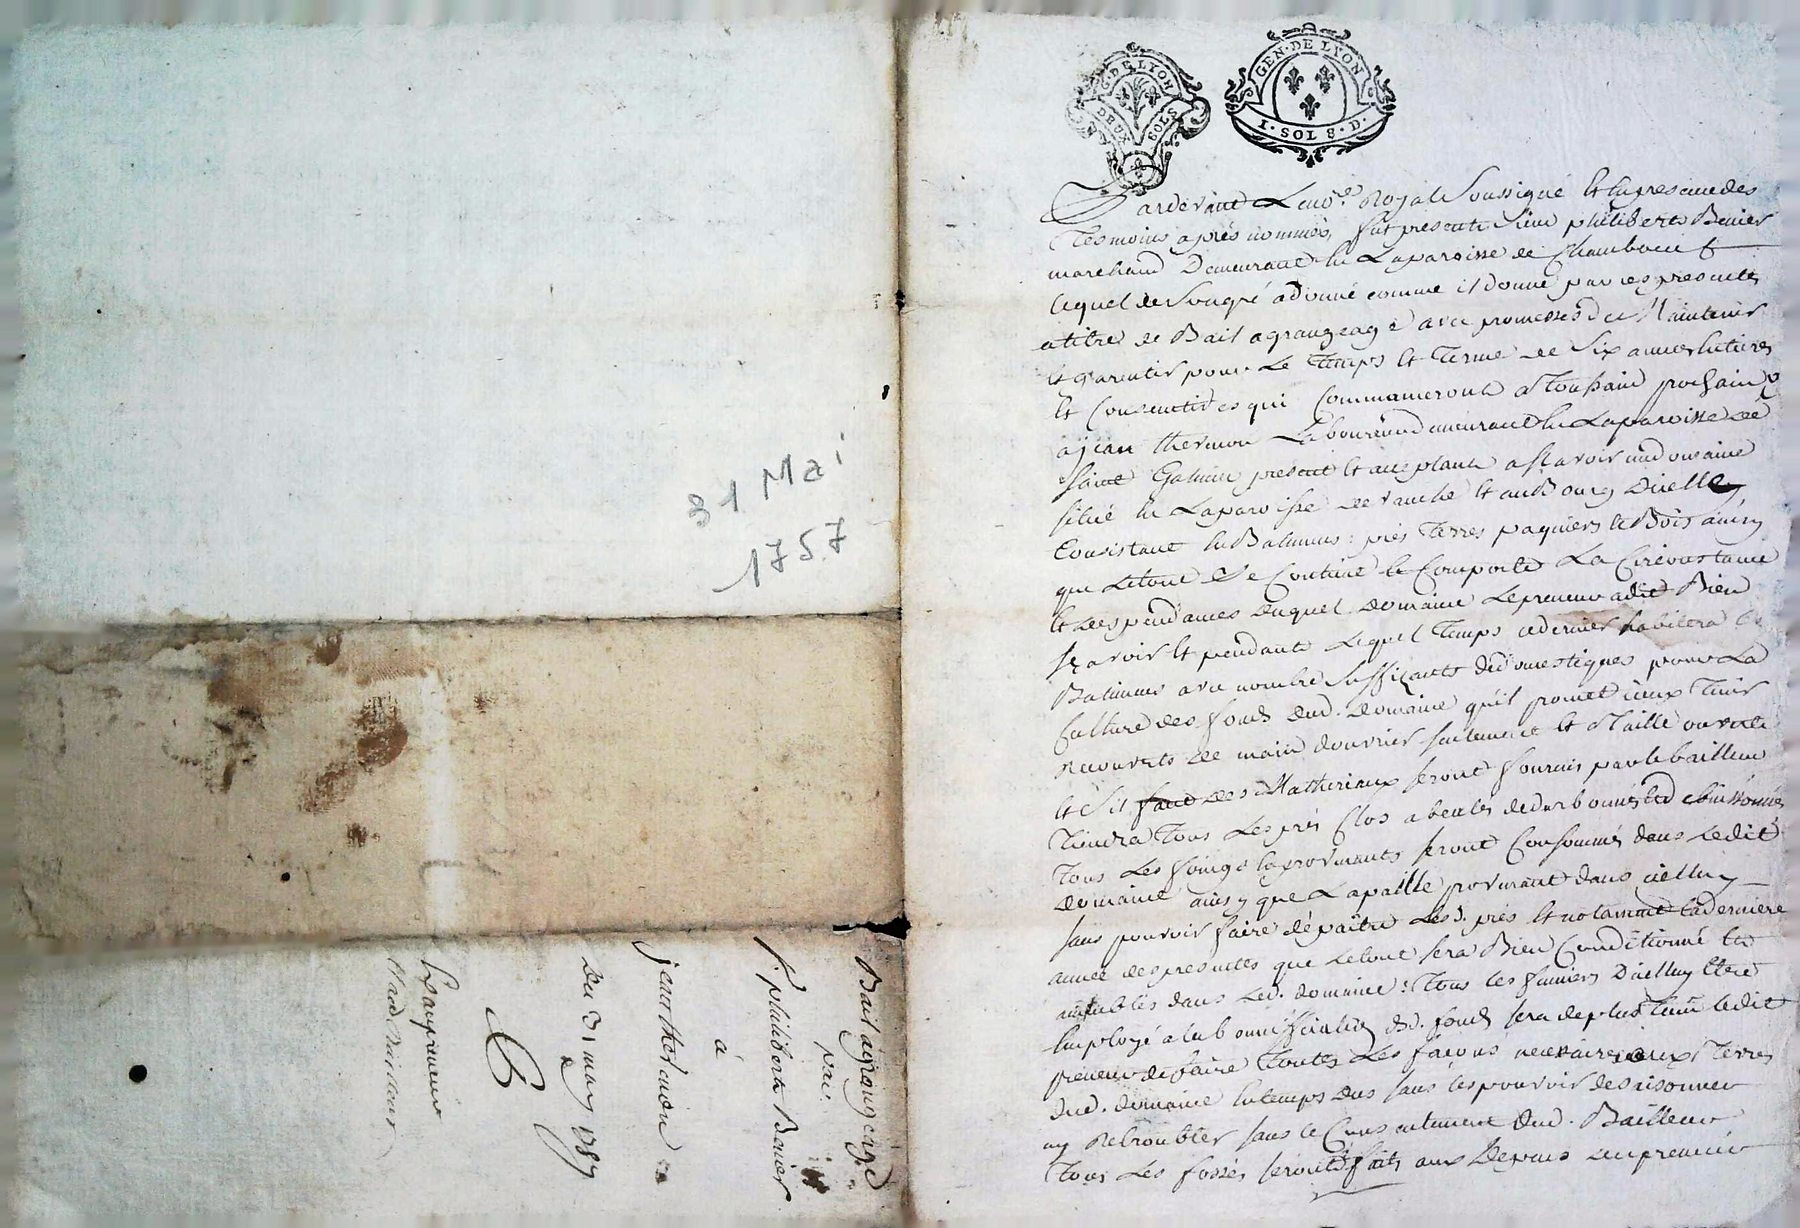 31 Mai
1757
Bail a grangeage
par
S. philibert Benier
à
jean thermon
Du 31 may 1757
G. DE LYON
DEUX SOLS
GEN. DE LYON
I. SOL 8. D.
Pardevant Le no.re Royale Soussigné Et En presence des
Tesmoins aprés nommés, fut present Sieur philibert Benier
marchand Demeurant En Laparoisse de Chambœuf
lequel de Son gré a donné comme il donne par ces presentes
a titre de Bail a grangeage avec promesses de Maintenir
Et garentir pour Le Temps Et Terme de Six années Entieres
Et Consecutives qui Commanceront a Toussaint prochain
a jean thermon Laboureur demeurant En Laparoisse de
Saint Galmier présent Et acceptant a Scavoir un domaine
situé En Laparoisse de Vauche Et au Bourg Dicelle
Consistant En Batimens prés Terres paquiers Et Bois ainsy
que Letout Se Contient Et Comporte La Circonstance
Et Despendances Duquel Domaine Le preneur a dit Bien
Sçavoir Et pendant Lequel Temps ce dernier habitera les
Batimens avec nombre Suffizants de domestiques pour La
Culture des fonds dud. Domaine qu'il promet iceux Tenir
Recouverts de main d'ouvrier Seulement Et a Taille ouverte
Et Sil faut des Matheriaux Seront fournis par le bailleur
Tiendra Tous Les prés Clos
Tous Les foings En provenants Seront Consommés dans Ledit
Domaine ainsy que La paille provenant dans icelluy
sans pouvoir faire dépaitre Les d. prés Et notamment La derniere
année des presentes que Letout Sera Bien Conditionné Et
dans Led. domaine: Tous les fumiers Dicelluy Etre
Employé a la bonne desd. fonds Sera de plus Tenu Ledit
preneur de faire Toutes Les façons necessaires aux Terres
Dud. domaine En temps dus Sans les pouvoir dessaisonner
ny Retroubler Sans le Consentement Dud. Bailleur
Tous Les fossés Seront faits aux Depens du preneur